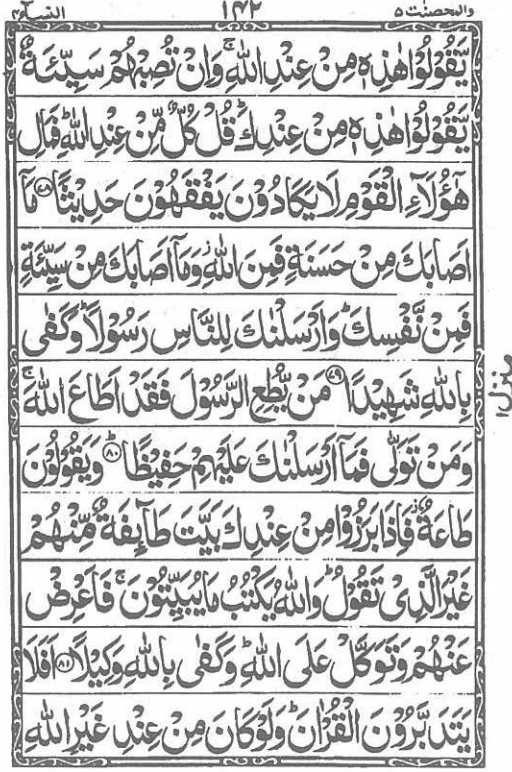 والمحصنت ۵ ۱۴۲ النسآء ۴
يَّقُوْلُوْا هٰذِهٖ مِنْ عِنْدِ اللّٰهِ ۚ وَاِنْ تُصِبْهُمْ سَيِّئَةٌ
يَّقُوْلُوْا هٰذِهٖ مِنْ عِنْدِكَ ؕ قُلْ كُلٌّ مِّنْ عِنْدِ اللّٰهِ ؕ فَمَالِ
هٰٓؤُلَآءِ الْقَوْمِ لَا يَكَادُوْنَ يَفْقَهُوْنَ حَدِيْثًا ﴿۷۸﴾ مَآ
اَصَابَكَ مِنْ حَسَنَةٍ فَمِنَ اللّٰهِ ؗ وَمَآ اَصَابَكَ مِنْ سَيِّئَةٍ
فَمِنْ نَّفْسِكَ ؕ وَاَرْسَلْنٰكَ لِلنَّاسِ رَسُوْلًا ؕ وَكَفٰى
بِاللّٰهِ شَهِيْدًا ﴿۷۹﴾ مَنْ يُّطِعِ الرَّسُوْلَ فَقَدْ اَطَاعَ اللّٰهَ ۚ
وَمَنْ تَوَلّٰى فَمَآ اَرْسَلْنٰكَ عَلَيْهِمْ حَفِيْظًا ﴿۸۰﴾ؕ وَيَقُوْلُوْنَ
طَاعَةٌ ؗ فَاِذَا بَرَزُوْا مِنْ عِنْدِكَ بَيَّتَ طَآئِفَةٌ مِّنْهُمْ
غَيْرَ الَّذِيْ تَقُوْلُ ؕ وَاللّٰهُ يَكْتُبُ مَا يُبَيِّتُوْنَ ۚ فَاَعْرِضْ
عَنْهُمْ وَتَوَكَّلْ عَلَى اللّٰهِ ؕ وَكَفٰى بِاللّٰهِ وَكِيْلًا ﴿۸۱﴾ اَفَلَا
يَتَدَبَّرُوْنَ الْقُرْاٰنَ ؕ وَلَوْ كَانَ مِنْ عِنْدِ غَيْرِ اللّٰهِ
منزل ۱